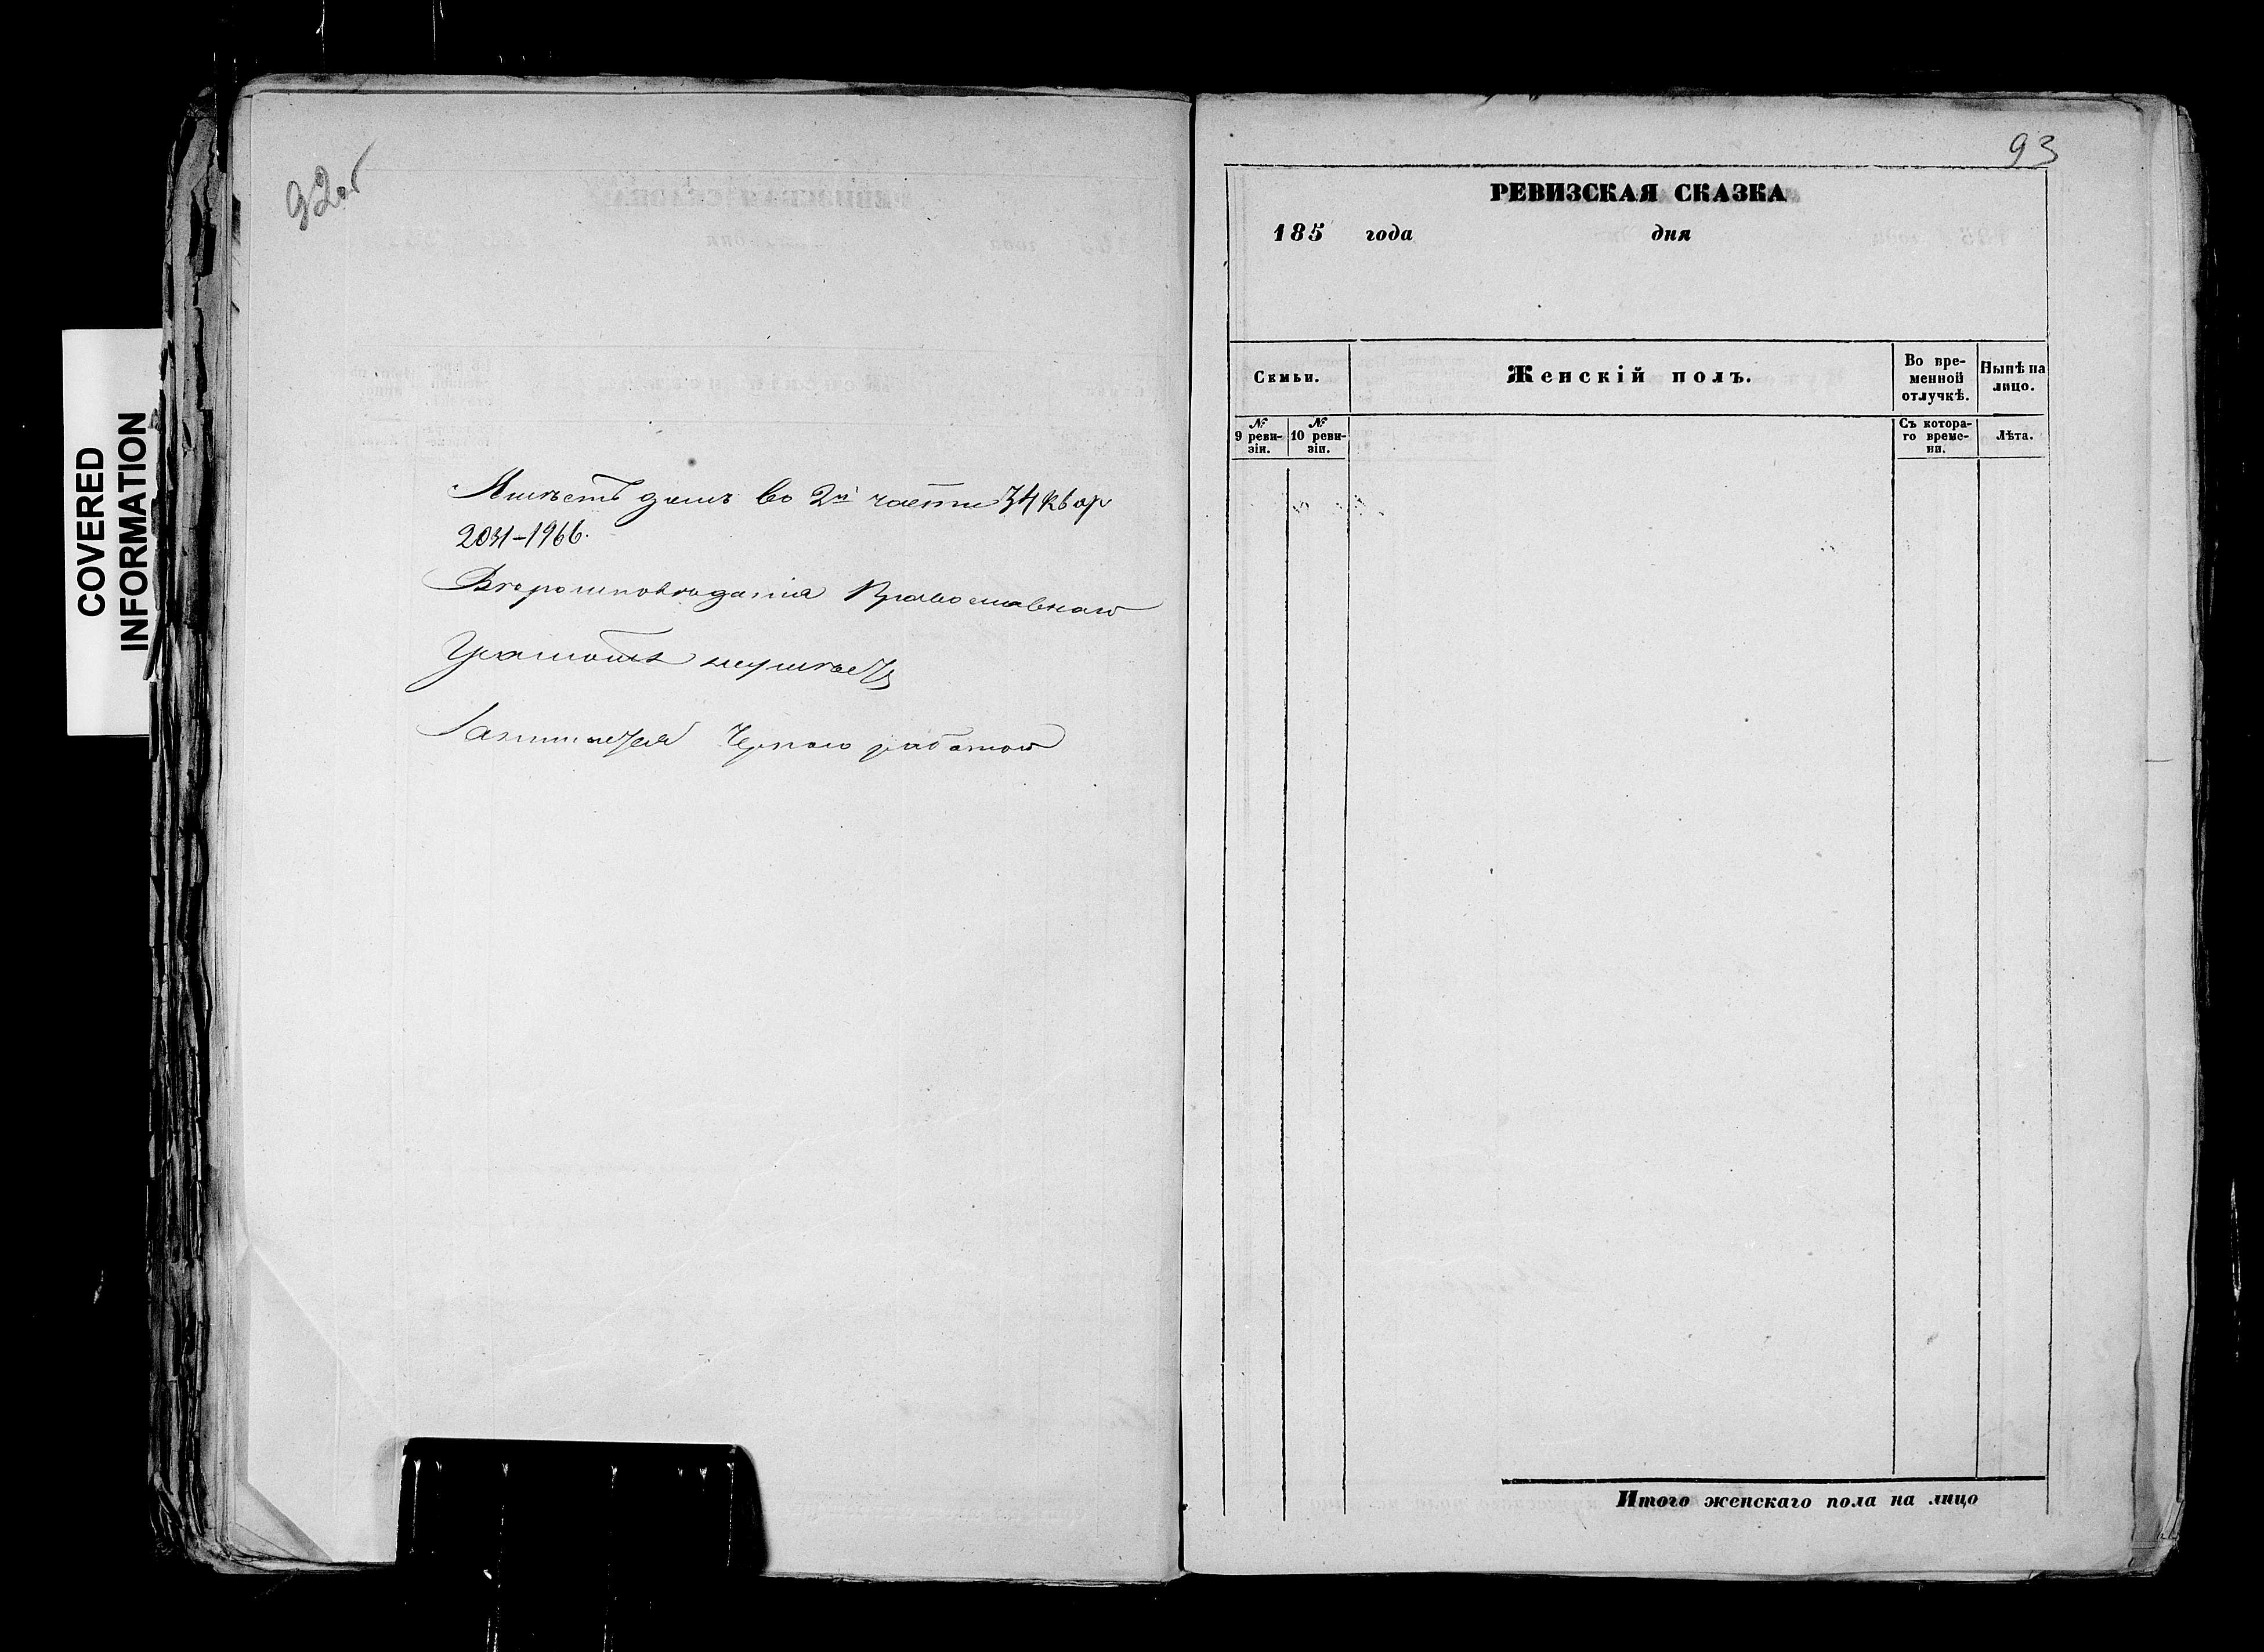 COVERED
INFORMATION
92об
Имѣетъ домъ во 2й части 34 квар
Вѣроисповѣданія Православнаго
Грамотѣ неумѣетъ
Занимается Черною работою
93
РЕВИЗСКАЯ СКАЗКА
185 года дня
Семьи. Женскій полъ. Во вре-менной отлучкѣ. Нынѣ на лицо.
№ 9 реви-зіи. № 10 реви-зіи. Съ котора-го време-ни. Лѣта.
Итого женскаго пола на лицо